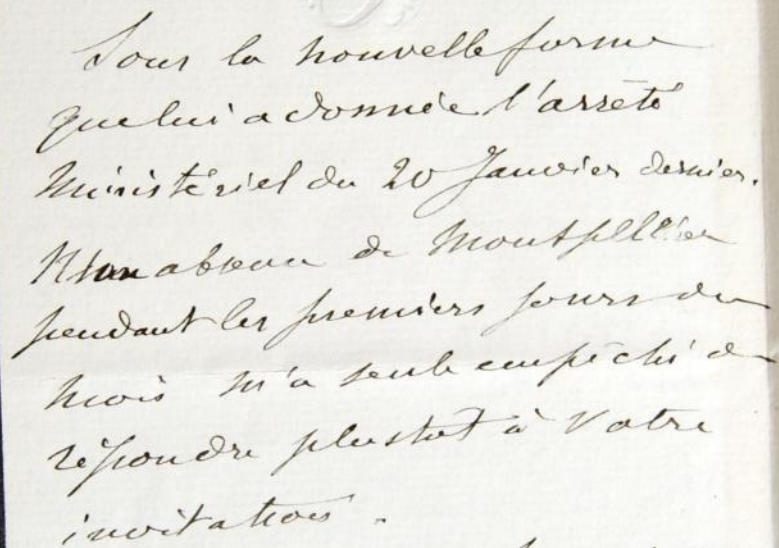 Sous la nouvelle forme
que lui a donnée l'arrêté
Ministériel du 20 Janvier dernier.
Mon absence de Montpellier
pendant les premiers jours du
mois m'a seule empêché de
répondre plustot à Votre
invitation.